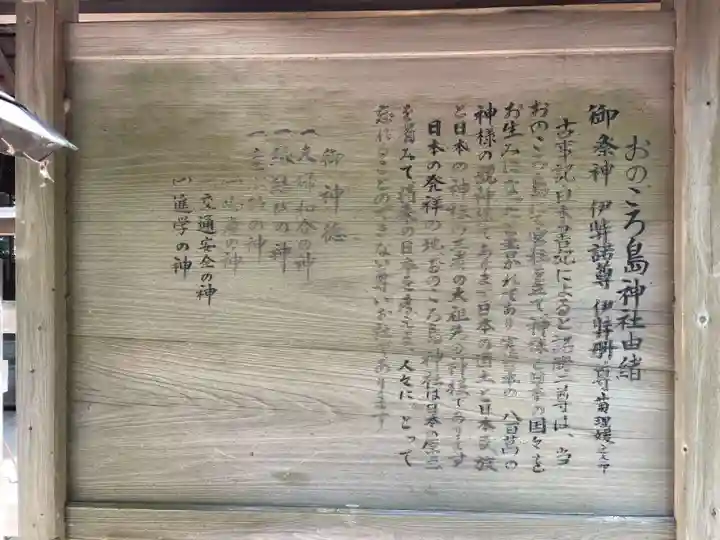 おのころ島神社由緒
御祭神 伊弉諾尊 伊弉冊尊 菊理媛之命
古事記日本書記によると諾冊二尊は、当
おのころ島にて宮柱を立て神様と日本の国々を
お生みになったと書かれてあり 日本の 八百萬の
神様の親神様であり 日本の国土と日本民族
と日本の神社の 大祖先の神社であります
日本の発祥の地、おのころ島神社は日本の原点
を省みて将来の日本を考える 人々にとって
忘れることのできない尊いお社であります
御神徳
一、夫婦和合の神
一、縁結びの神
一、安産の神
一、の神
交通安全の神
一、進学の神